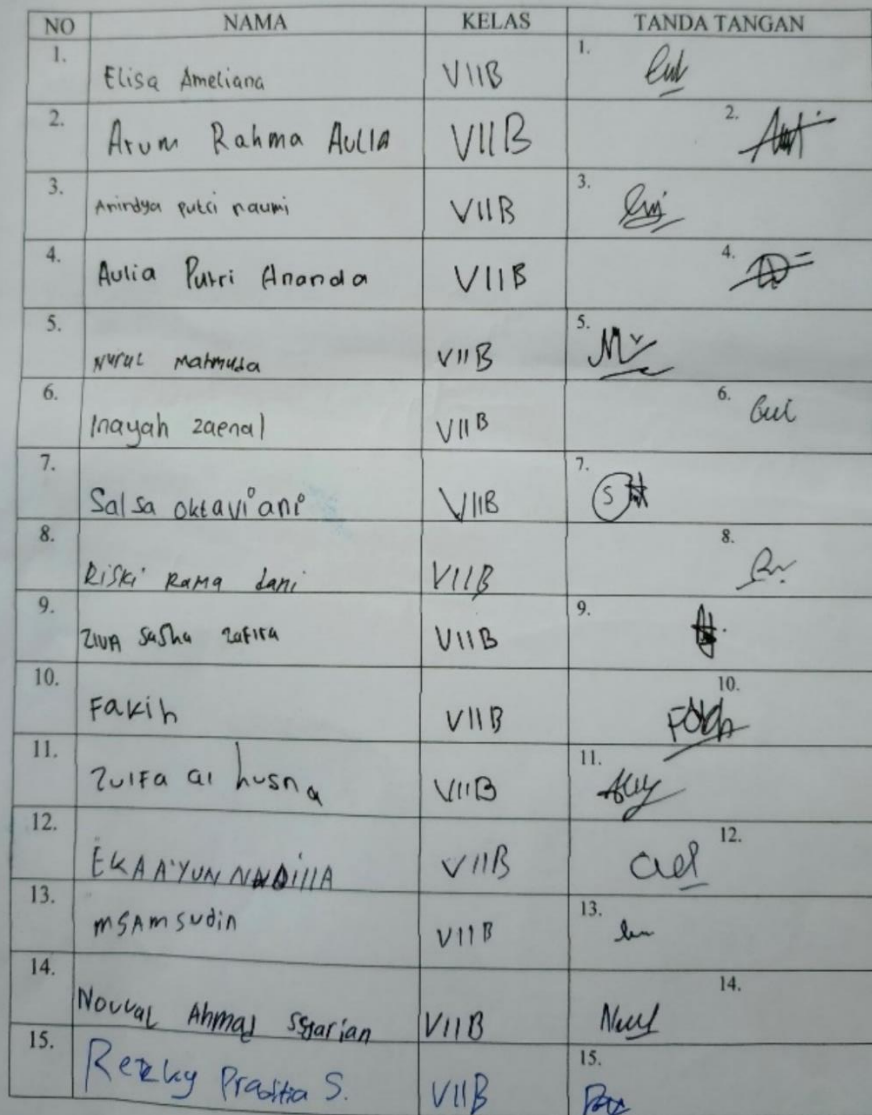 NO NAMA KELAS TANDA TANGAN
1. Elisa Ameliana VIIB 1.
2. Arum Rahma AULIA VIIB 2.
3. Anindya putri naumi VIIB 3.
4. Aulia Putri Ananda VIIB 4.
5. Nurul Mahmuda VIIB 5.
6. Inayah zaenal VIIB 6.
7. Salsa oktaviani VIIB 7.
8. Riski Rama dani VIIB 8.
9. ZIVA Sasha zafira VIIB 9.
10. Fakih VIIB 10.
11. Zulfa al husna VIIB 11.
12. EKA A'YUN VIIB 12.
13. MSAMSudin VIIB 13.
14. Ahmad VIIB 14.
15. S. VIIB 15.